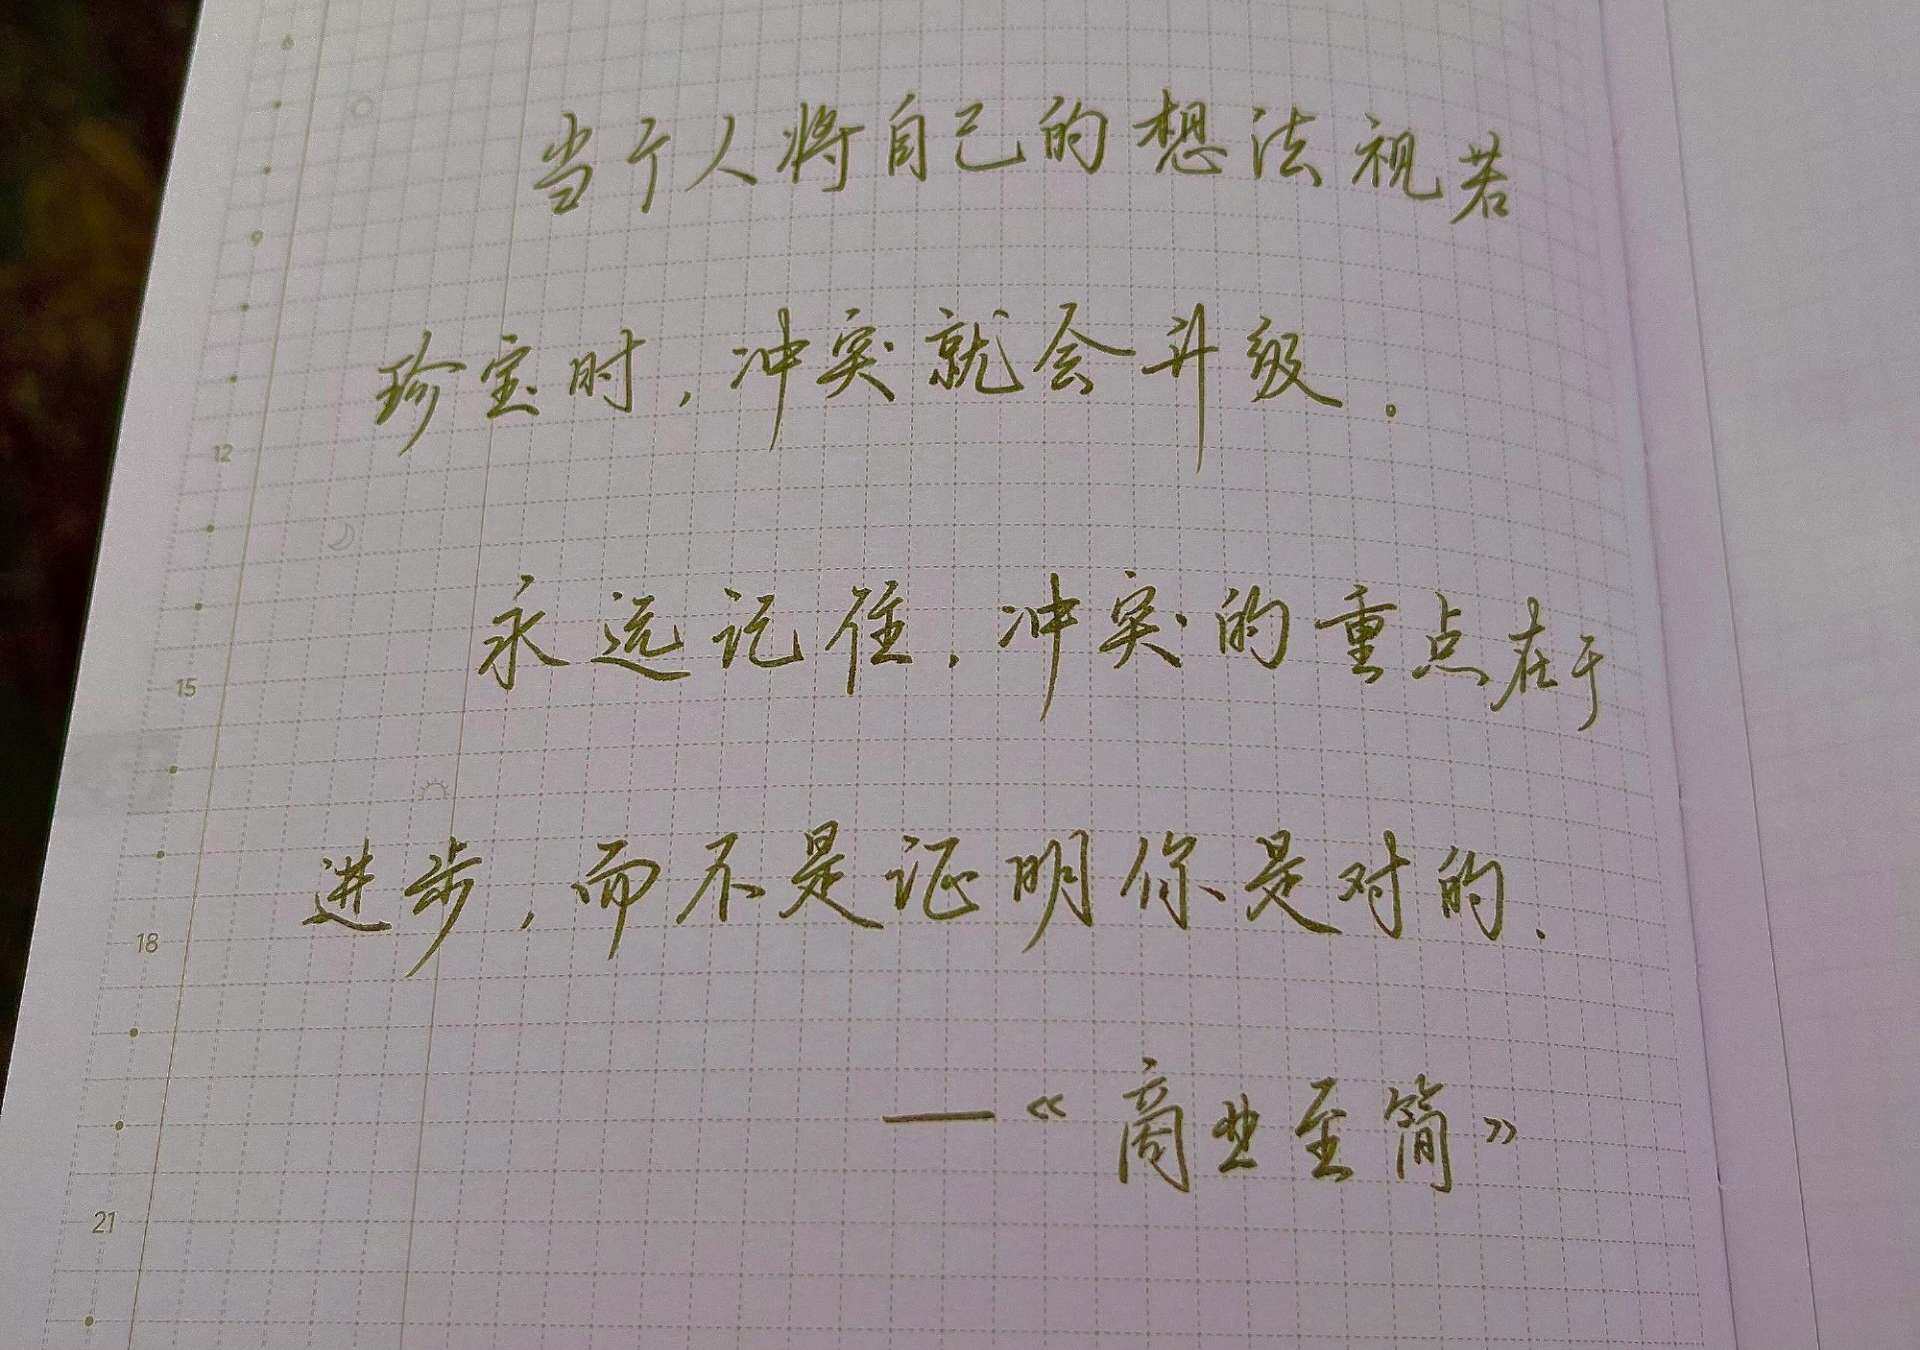 当个人将自己的想法视若
珍宝时，冲突就会升级。
永远记住，冲突的重点在于
进步，而不是证明你是对的.
—《商业至简》
9
12
15
18
21